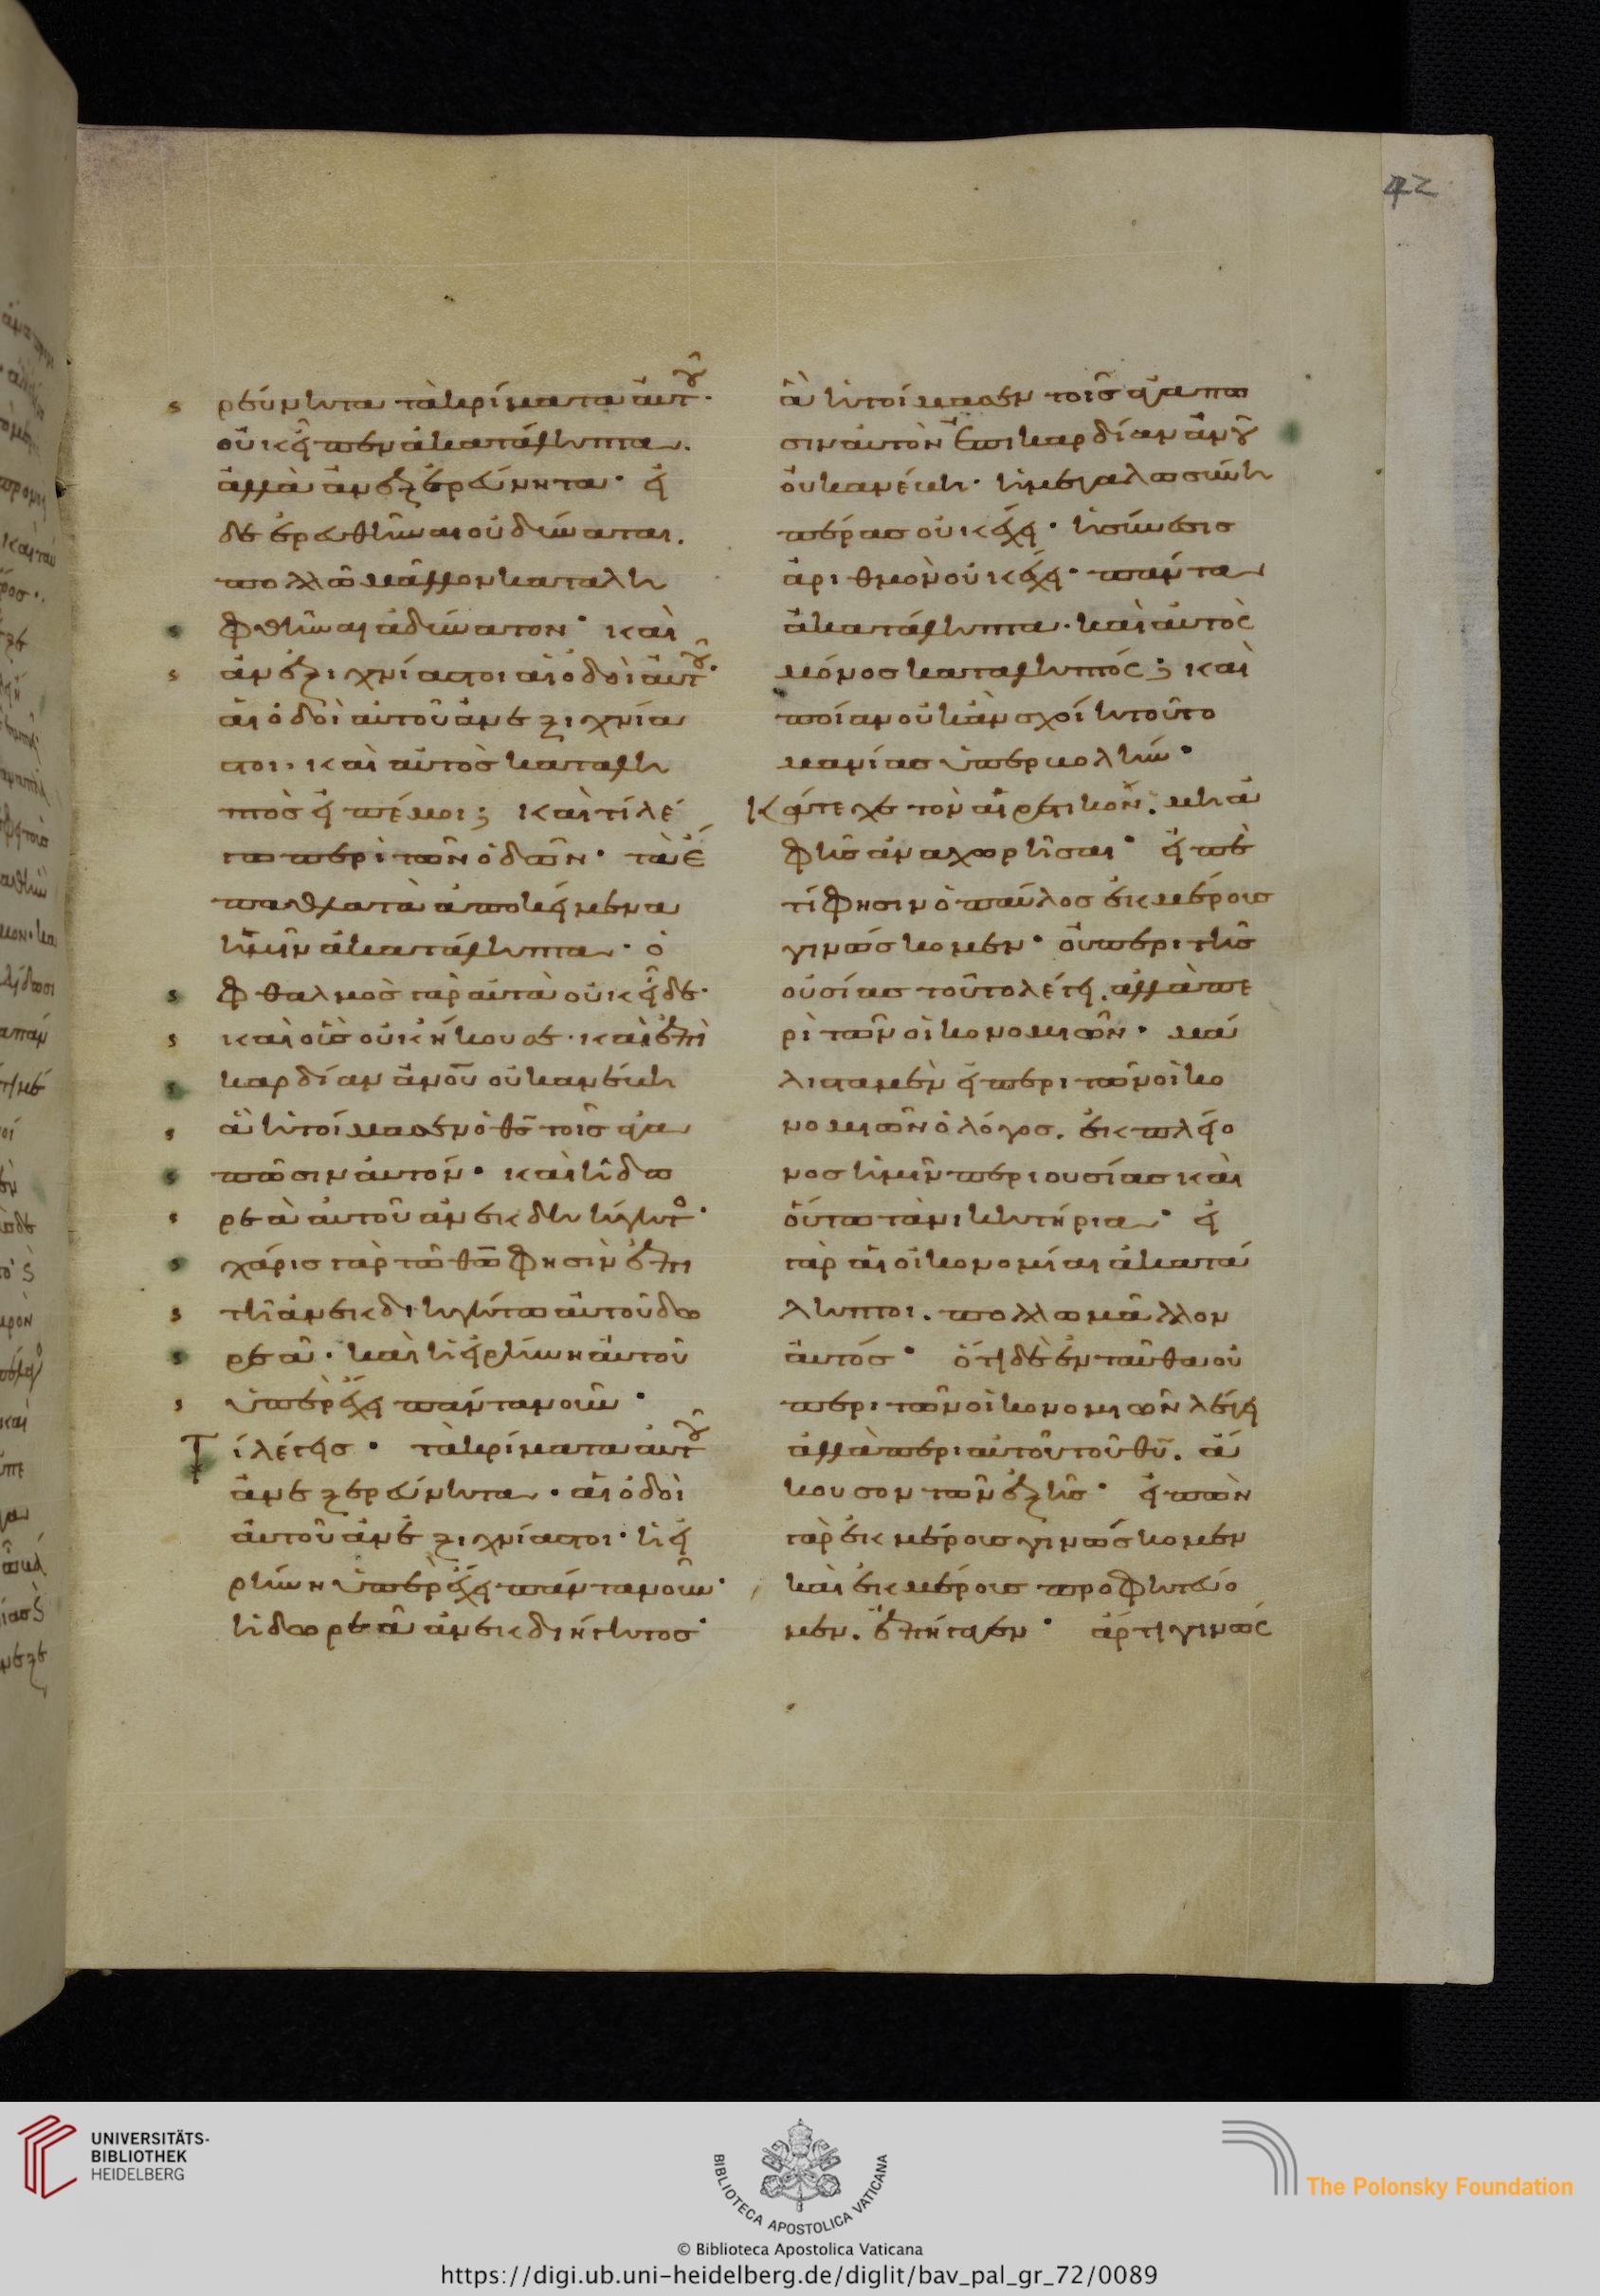 ρεύνητα τὰ κρίματα αὐτοῦ·
οὐκ εἶπεν ἀκατάληπτα.
ἀλλὰ ἀνεξερεύνητα· εἰ
δὲ ἐρευθῆναι οὐ δύναται.
πολλῶ μᾶλλον καταλη
φθῆναι ἀδύνατον· καὶ
ἀνεξιχνίαστοι αἱ ὁδοὶ αὐτοῦ·
αἱ ὁδοὶ αὐτοῦ ἀνεξιχνία
στοι· καὶ αὐτὸς καταλη
πτὸς εἰπέ μοι; καὶ τί λέ
γω περὶ τῶν ὁδῶν· τὰ ἔ
παθλα τὰ ἀποκείμενα
ἡμῖν ἀκατάληπτα· ὁ
φθαλμὸς γὰρ αὐτὰ οὐκ εἶδε·
καὶ οὖς οὐκ ἤκουσε· καὶ ἐπὶ
καρδίαν ἀνοῦ οὐκ ἀνέβη
ἃ ἡτοίμασεν ὁ θς τοῖς ἀγα
πῶσιν αὐτόν· καὶ ἡ δω
ρεὰ αὐτοῦ ἀνεκδιήγητο·
χάρις γὰρ τῶ θω φησὶν ἐπὶ
τῆ ἀνεκδιηγήτω αὐτοῦ δω
ρεᾶ· καὶ ἡ εἰρήνη αὐτοῦ
ὑπερέχει πάντα νοῦν·
Τί λέγεις· τὰ κρίματα αὐτοῦ
ἀνεξερεύνητα· αἱ ὁδοὶ
αὐτοῦ ἀνεξιχνίαστοι· ἡ εἰ
ρήνη ὑπερέχει πάντα νοῦν·
ἡ δωρεὰ ἀνεκδιήγητος·
ἃ ἡτοίμασεν τοῖς ἀγαπῶ
σιν αὐτὸν ἐπὶ καρδίαν ἀνου
οὐκ ἀνέβη· ἡ μεγαλωσύνη
πέρας οὐκ ἔχει· ἡ σύνεσις
ἀριθμὸν οὐκ ἔχει· πάντα
ἀκατάληπτα· καὶ αὐτὸς
μόνος καταληπτός; καὶ
ποίαν οὐκ ἂν σχοίη τοῦτο
μανίας ὑπερβολήν·
Κάτεχε τὸν αἱρετικόν. μὴ ἀ
φῆς ἀναχωρῆσαι· εἰπὲ
τί φησιν ὁ παῦλος ἐκ μέρους
γινώσκομεν· οὐ περὶ τῆς
οὐσίας τοῦτο λέγει. ἀλλὰ πε
ρὶ τῶν οἰκονομιῶν· μά
λιστα μὲν εἰ περὶ τῶν οἰκο
νομιῶν ὁ λόγος. ἐκ πλείο
νος ἡμῖν περιουσίας καὶ
οὕτω τὰ νικητήρια· εἰ
γὰρ αἱ οἰκονομίαι ἀκατά
ληπτοι. πολλω μᾶλλον
αὐτός· ὅτι δὲ ἐνταῦθα οὐ
περὶ τῶν οἰκονομιῶν λέγει
ἀλλὰ περὶ αὐτοῦ τοῦ θυ. ἄ
κουσον τῶν ἑξῆς· εἰπὼν
γὰρ ἐκ μέρους γινώσκομεν
καὶ ἐκ μέρους προφητεύο
μεν. ἐπήγαγεν· ἄρτι γινώσ
42
UNIVERSITÄTS-
BIBLIOTHEK
HEIDELBERG
BIBLIOTECA APOSTOLICA VATICANA
The Polonsky Foundation
© Biblioteca Apostolica Vaticana
https://digi.ub.uni-heidelberg.de/diglit/bav_pal_gr_72/0089